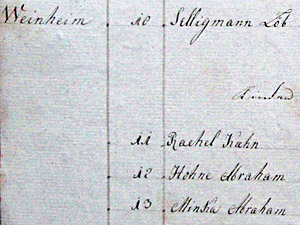 Weinheim . 10 . Selligmann Löb
. 11 . Rachel Kahn
. 12 . Hohne Abraham
. 13 . Minka Abraham